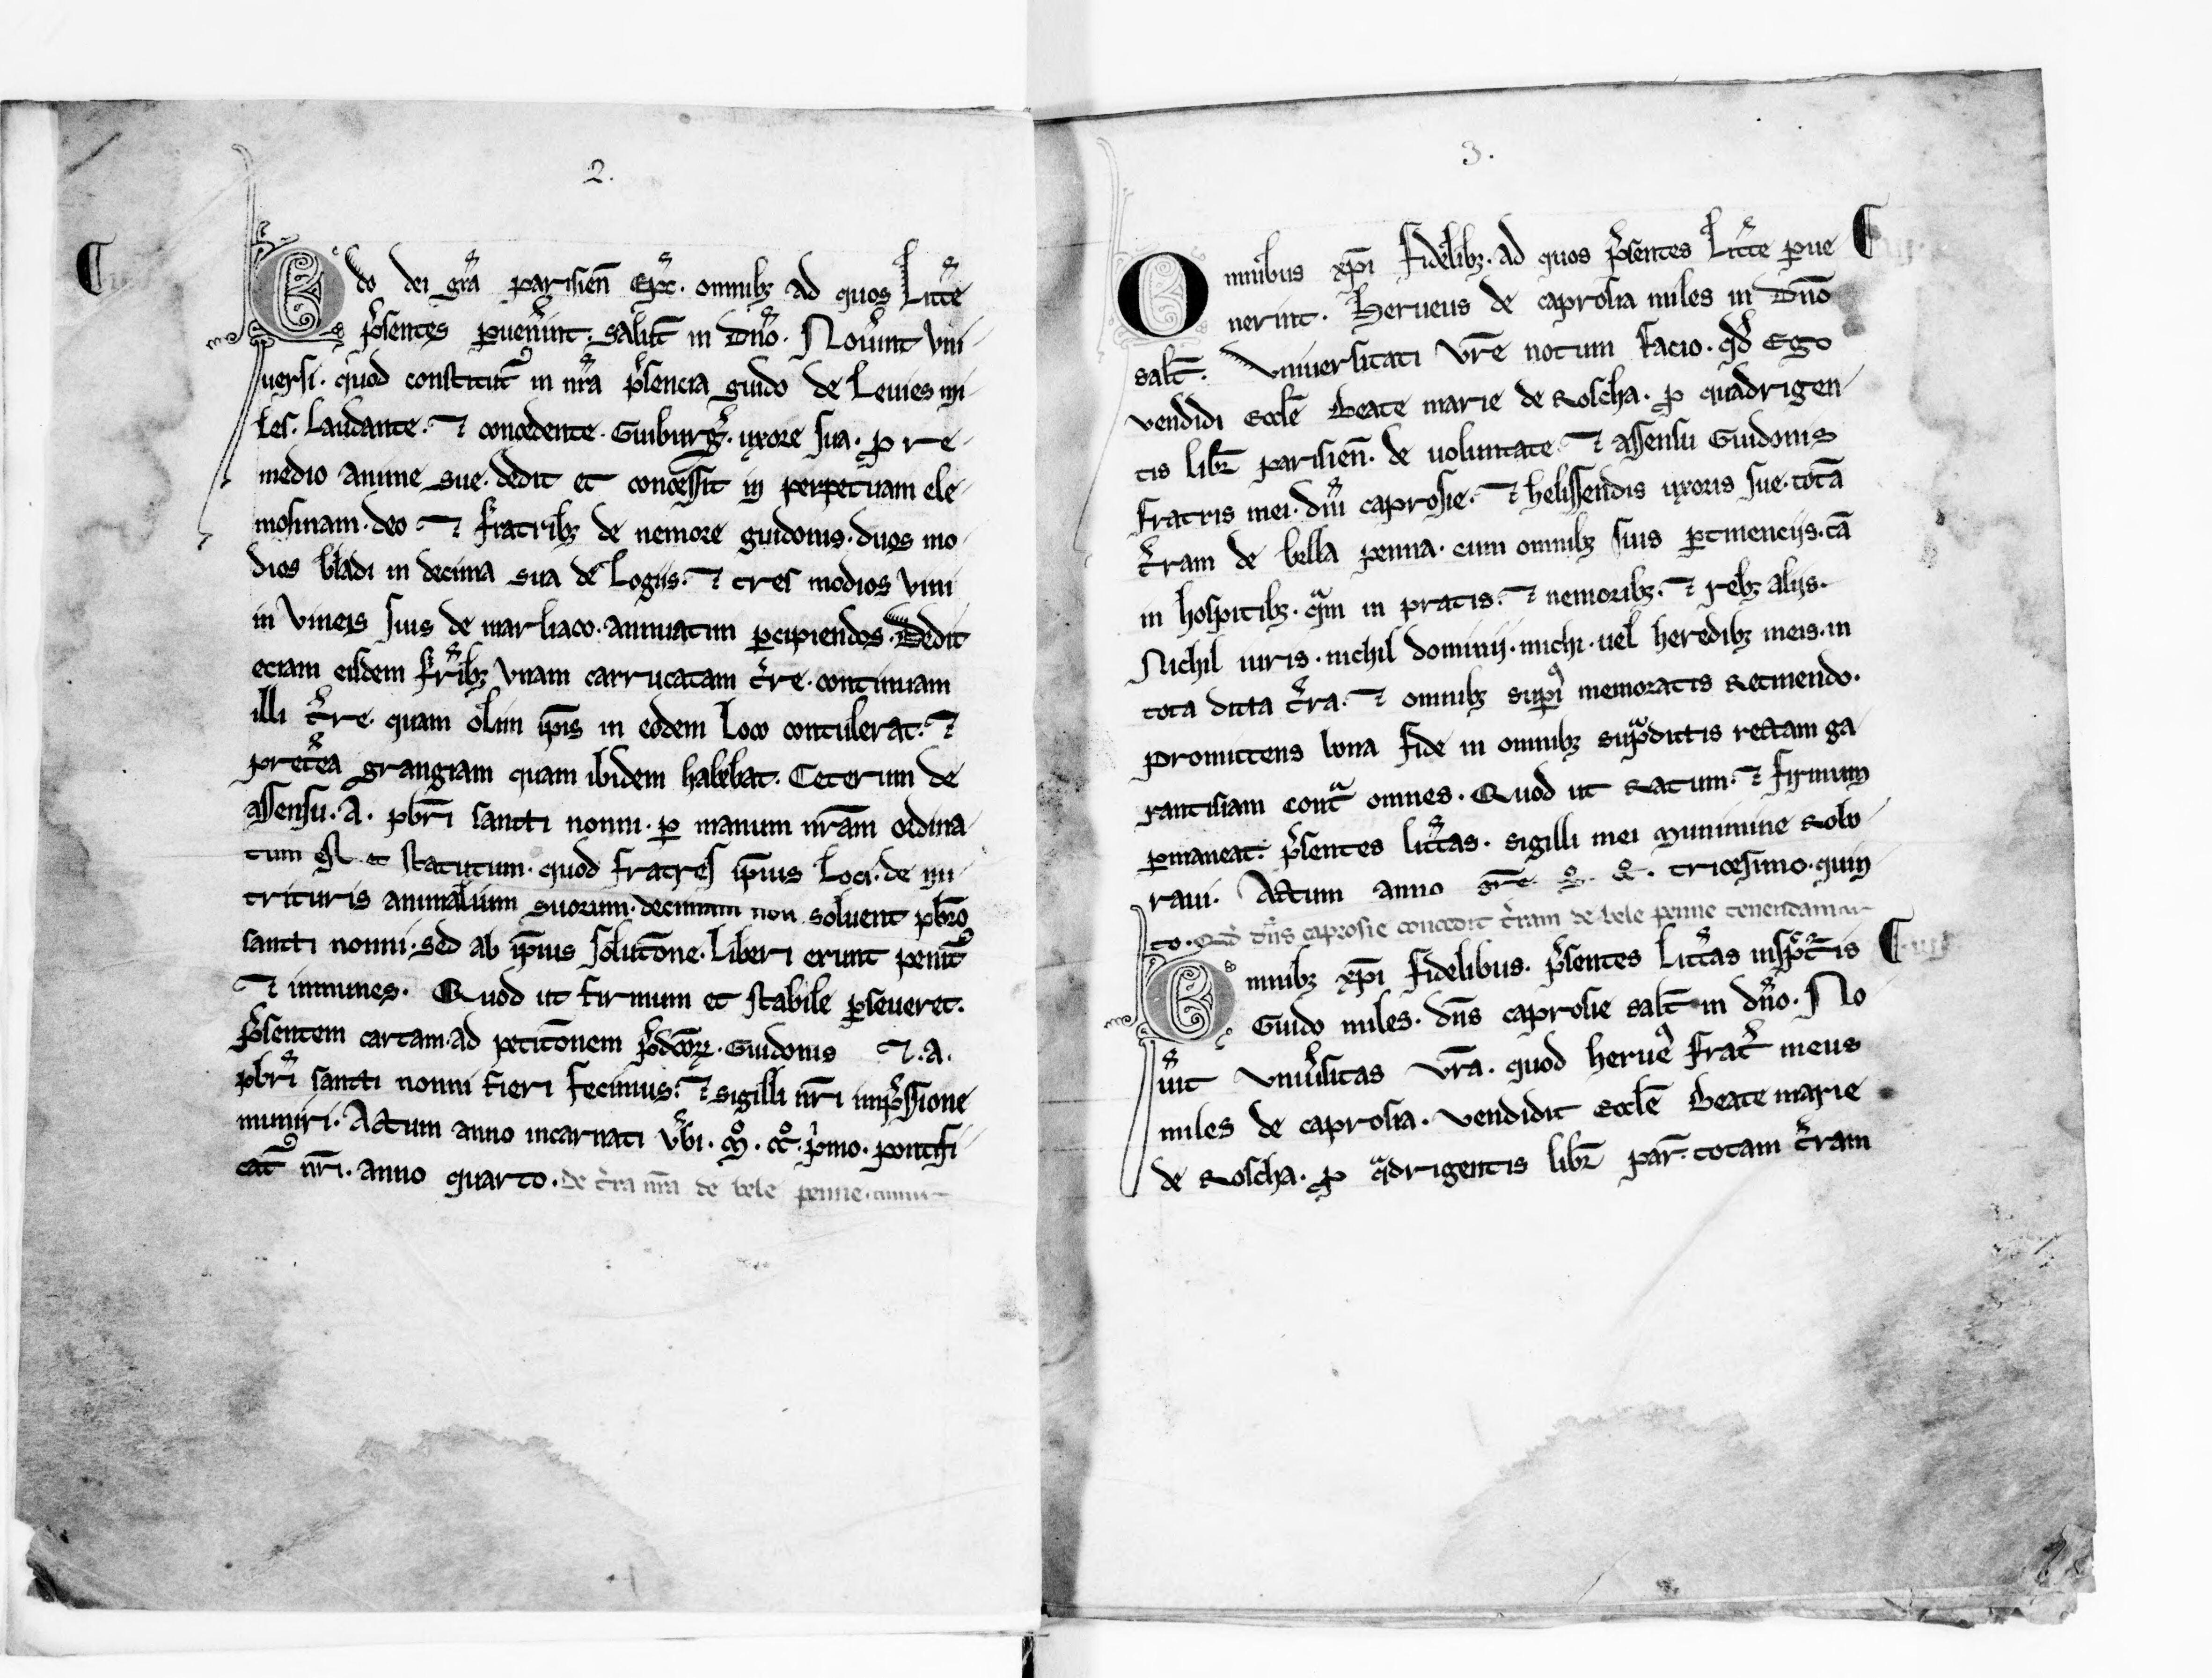 2.
Odo dei gr̄a parisien̄ Ep̄c. omnibꝫ ad quos Litt̄e
p̄sentes ꝑuen̄int. salut̄ in Dn̄o. Nov̄int vni
uersi. quod constitutꝰ in nr̄a p̄sencia guido de Leuies mi
les. Laudante. ⁊ concedente. Guiburḡ. uxore sua. ꝓ re
medio anime sue. dedit et concessit in perpetuam ele
mosinam. deo ⁊ fratribꝫ de nemore guidonis. duos mo
dios bladi in decima sua de Logiis. ⁊ tres modios vini
in vineis suis de marliaco. annuatim ꝑcipiendos. Dedit
eciam eisdem fr̄ibꝫ vnam carrucatam t̄re. continuam
illi t̄re. quam olim ip̄is in eodem Loco contulerat. ⁊
pret̄ea grangiam quam ibidem habebat. Ceterum de
assensu. A. pb̄ri sancti nonni. ꝑ manum nr̄am ordina
tum est et statutum. quod fratres ip̄ius Loci. de nu
trituris animalium suorum. decimam non soluent pb̄ro
sancti nonni. sed ab ip̄ius solut̄one. Liberi erunt penitꝰ
⁊ immunes. Quod ut firmum et stabile ꝑseueret.
p̄sentem cartam. ad petit̄onem p̄dc̄oꝝ. Guidonis ⁊. A.
pb̄ri sancti nonni fieri fecimus. ⁊ sigilli nr̄i imp̄ssione
muniri. Actum anno incarnati v̄bi. M̊. CC̊. p̍mo. pontifi
catꝰ nr̄i. anno quarto. de t̄ra nr̄a de bele penne.
3.
Omnibus xp̄i fidelibꝫ. ad quos p̄sentes Litt̄e ꝑue
nerint. Herueus de caprosia miles in Dn̄o
salt̄. Vniuersitati vr̄e notum facio. qd̄ Ego
vendidi eccl̄e Beate marie de Roscha. ꝓ quadrigen
tis libr̄ parisien̄. de uoluntate ⁊ assensu Guidonis
fratris mei. dn̄i caprosie. ⁊ helissendis uxoris sue. totā
t̄ram de bella penna. cum omnibꝫ suis ꝑtinenciis. tā
in hospitibꝫ. qᵃm in pratis. ⁊ nemoribꝫ. ⁊ rebꝫ aliis.
Nichil iuris. nichil dominii. michi. uel heredibꝫ meis. in
tota dicta t̄ra. ⁊ omnibꝫ supi̍ memoratis Retinendo.
promittens bona fide in omnibꝫ sup̄dictis rectam ga
rantisiam contᵃ omnes. Quod ut Ratum. ⁊ firmum
ꝑmaneat. p̄sentes litt̄as. sigilli mei munimine Robo
raui. Actum anno gr̄e M̊. CC̊. tricesimo. quin
to. Qd̄ dn̄s caprosie concedit t̄ram de bele penne tenendam
Omnibꝫ xp̄i fidelibus. p̄sentes Litt̄as insp̄c̄t̄is
Guido miles. dn̄s caprosie salt̄ in dn̄o. No
v̄it vniu̍sitas vr̄a. quod herueꝰ frat̄ meus
miles de caprosia. vendidit eccl̄e Beate marie
de Roscha. ꝓ qᵃdrigentis libr̄ par̄. totam t̄ram